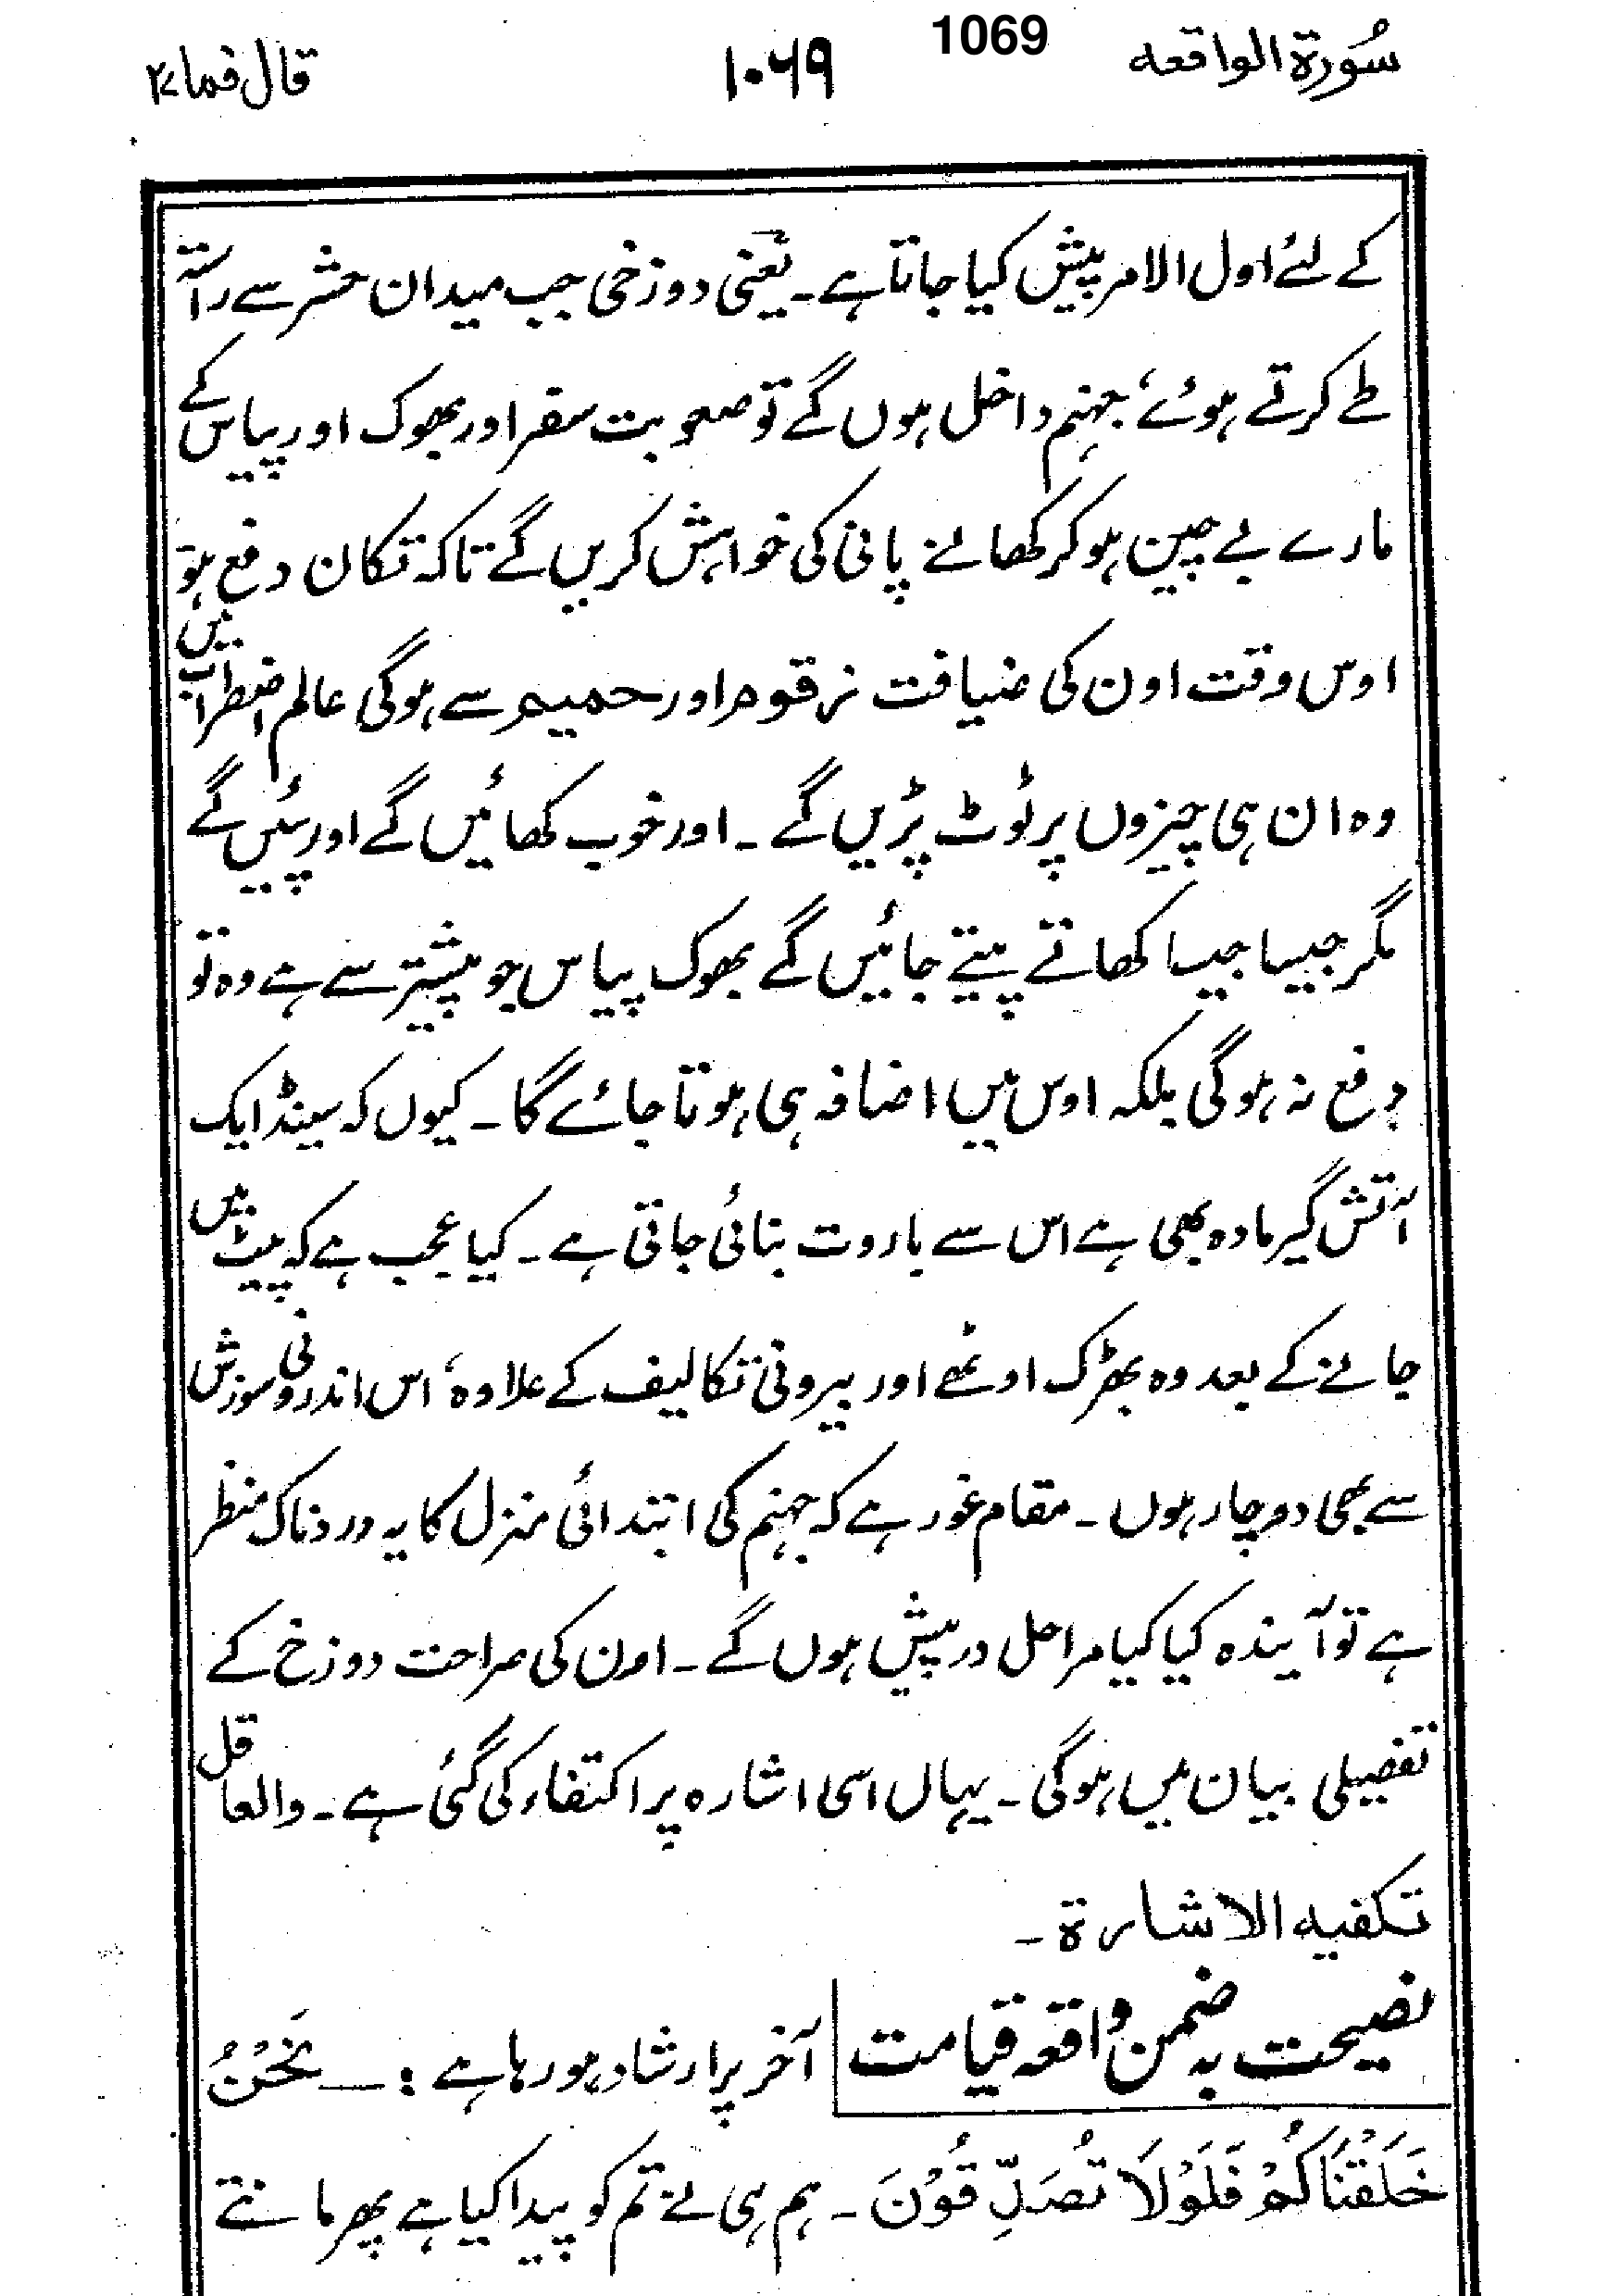 سُورۃ الواقعہ 1069 ۱۰۶۹ قال فما ۲۷
کے لئے اول الامر پیش کیا جاتا ہے۔ یعنی دوزخی جب میدان حشر سے راستہ
طے کرتے ہوئے، جہنم داخل ہوں گے تو صعوبت سفر اور بھوک اور پیاس کے
مارے بے چین ہو کر کھانے پانی کی خواہش کریں گے تاکہ تکان دفع ہو تو
اوس وقت اون کی ضیافت زقوم اور حمیم سے ہوگی عالم اضطراب میں
وہ ان ہی چیزوں پر ٹوٹ پڑیں گے۔ اور خوب کھائیں گے اور پئیں گے
مگر جیسا جیسا کھاتے پیتے جائیں گے بھوک پیاس جو پیشتر سے ہے وہ تو
دفع نہ ہوگی بلکہ اوس میں اضافہ ہی ہوتا جائے گا۔ کیوں کہ سینڈ ایک
آتش گیر مادہ بھی ہے اس سے باروت بنائی جاتی ہے۔ کیا عجب ہے کہ پیٹ میں
جانے کے بعد وہ بھڑک اوٹھے اور بیرونی تکالیف کے علاوہ، اس اندرونی سوزش
سے بھی دوچار ہوں۔ مقام غور ہے کہ جہنم کی ابتدائی منزل کا یہ دردناک منظر
ہے تو آیندہ کیا کیا مراحل درپیش ہوں گے۔ اون کی صراحت دوزخ کے
تفصیلی بیان میں ہوگی۔ یہاں اسی اشارہ پر اکتفاء کی گئی ہے۔ والعاقل
تکفیہ الاشارۃ۔
نصیحت بہ ضمن واقعہ قیامت آخر پر ارشاد ہو رہا ہے :— نَحْنُ
خَلَقْنَاكُمْ فَلَوْلَا تُصَدِّقُوْنَ۔ ہم ہی نے تم کو پیدا کیا ہے پھر مانتے